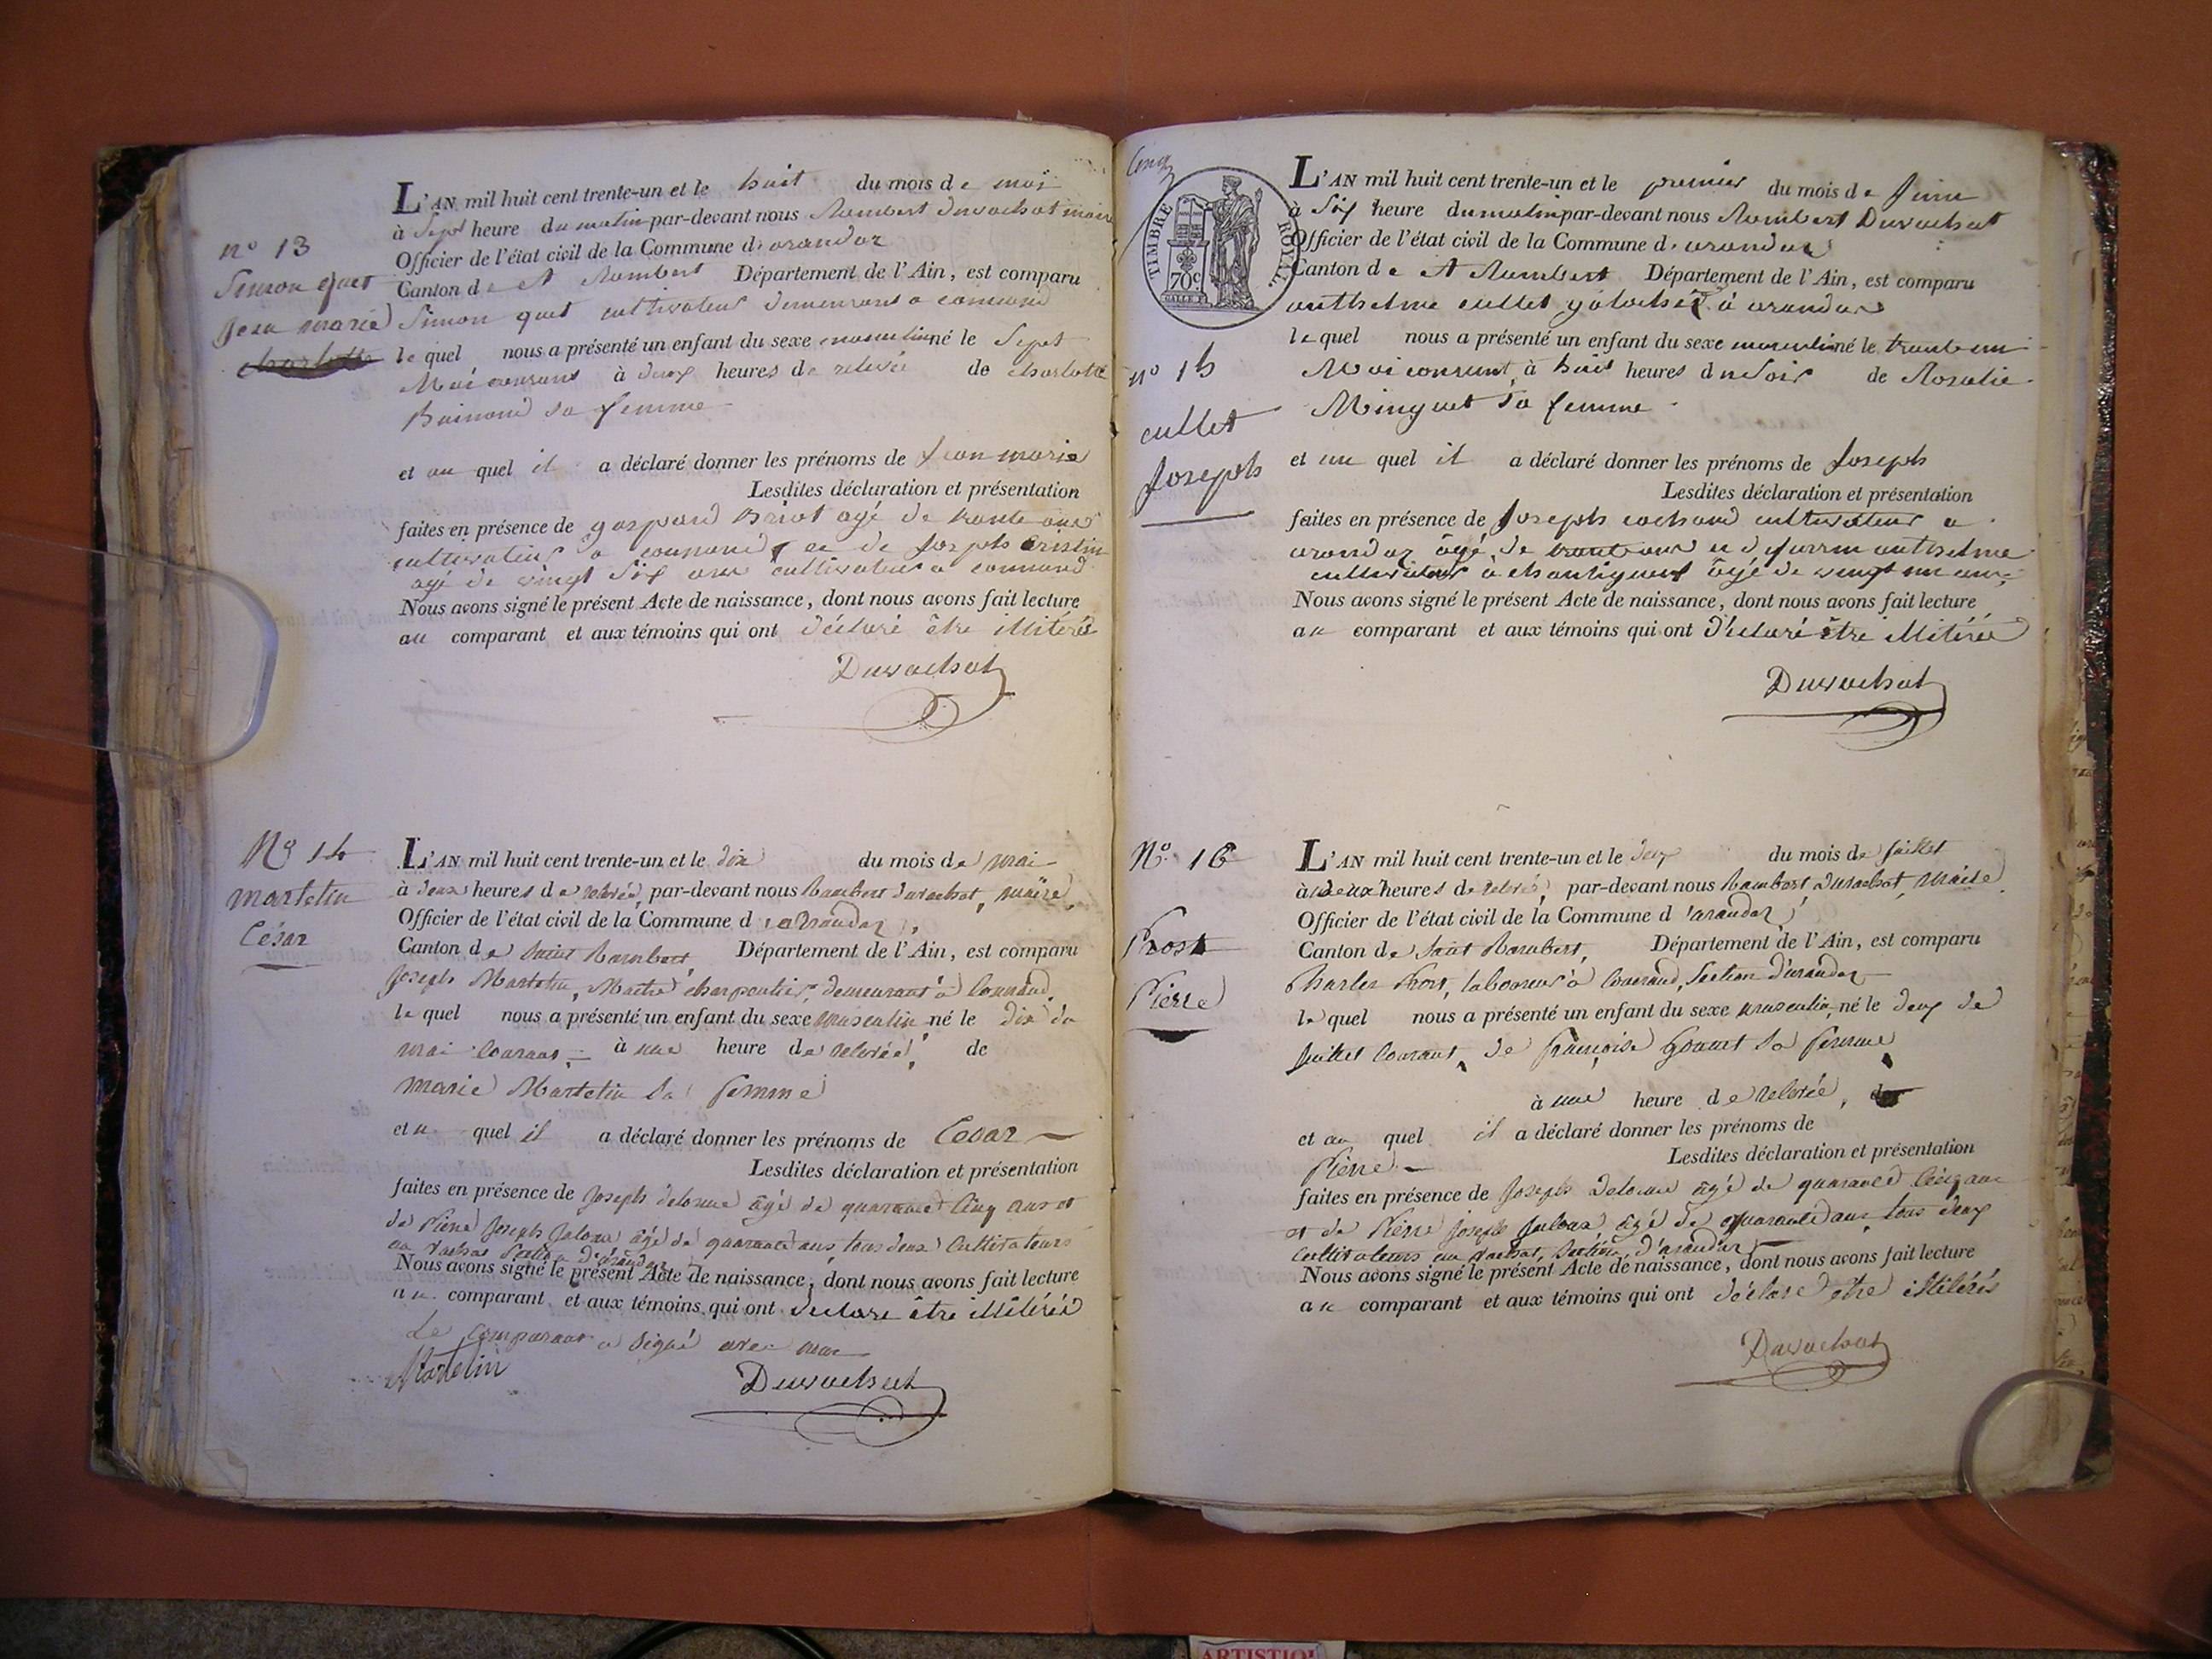 n° 13
Simon quet
Jean marie
charlotte
L'AN mil huit cent trente-un et le huit du mois de mai
à Sept heure du matin par-devant nous Rambert Duvachat maire
Officier de l'état civil de la Commune d'arandaz
Canton de St Rambert Département de l'Ain, est comparu
Simon quet cultivateur demeurant a conand
le quel nous a présenté un enfant du sexe masculin né le Sept
Mai courant à deux heures de relevée de charlotte
sa femme
et au quel il a déclaré donner les prénoms de Jean marie
Lesdites déclaration et présentation
faites en présence de gaspard Briot agé de trente ans
cultivateur a connand et de Joseph Cristin
agé de vingt Six ans cultivateur a connand
Nous avons signé le présent Acte de naissance, dont nous avons fait lecture
au comparant et aux témoins qui ont déclaré être illitérés
Duvachat
N° 14
Martelin
César
L'AN mil huit cent trente-un et le dix du mois de mai
à deux heures de relevée, par-devant nous Rambert Duvachat, maire,
Officier de l'état civil de la Commune d'arandaz,
Canton de Saint Rambert, Département de l'Ain, est comparu
Joseph Martelin, Maitre charpentier, demeurant à Connand,
le quel nous a présenté un enfant du sexe masculin né le dix du
mai courant à une heure de relevée, de
marie Martelin Sa femme
et au quel il a déclaré donner les prénoms de César
Lesdites déclaration et présentation
faites en présence de Joseph delorme âgé de quarante Cinq ans et
de Pierre Joseph Juloux âgé de quarante ans, tous deux Cultivateurs
au vachat Section d'arandaz
Nous avons signé le présent Acte de naissance, dont nous avons fait lecture
au comparant et aux témoins qui ont déclaré être illitérés
Le Comparant a Signé avec nous
Martelin
Duvachat
Cinq
TIMBRE ROYAL.
70c
n° 15
cullet
Joseph
L'AN mil huit cent trente-un et le premier du mois de Juin
à Six heure du matin par-devant nous Rambert Duvachat
Officier de l'état civil de la Commune d'arandaz
Canton de St Rambert Département de l'Ain, est comparu
anthelme cullet à arandas
le quel nous a présenté un enfant du sexe masculin né le trente un
Mai courant, à huit heures du Soir de Rosalie
Minguet Sa femme
et au quel il a déclaré donner les prénoms de Joseph
Lesdites déclaration et présentation
faites en présence de Joseph cochand cultivateur a
arandaz âgé de trente ans et de anthelme
cultivateur à âgé de vingt un ans
Nous avons signé le présent Acte de naissance, dont nous avons fait lecture
au comparant et aux témoins qui ont déclaré être illitérés
Duvachat
N° 16
Prost
Pierre
L'AN mil huit cent trente-un et le deux du mois de juillet
à deux heures de relevée, par-devant nous Rambert Duvachat, Maire
Officier de l'état civil de la Commune d'arandaz,
Canton de Saint Rambert, Département de l'Ain, est comparu
Charles Prost, laboureur à Connand, Section d'arandaz
le quel nous a présenté un enfant du sexe masculin, né le deux de
Juillet Courant, de françoise Sa femme
à une heure de relevée,
et au quel il a déclaré donner les prénoms de
Pierre
Lesdites déclaration et présentation
faites en présence de Joseph Delorme âgé de quarante Cinq ans
et de Pierre Joseph Juloux âgé de quarante ans, tous deux
Cultivateurs au vachat, Section d'arandaz
Nous avons signé le présent Acte de naissance, dont nous avons fait lecture
au comparant et aux témoins qui ont déclaré être illitérés
Duvachat